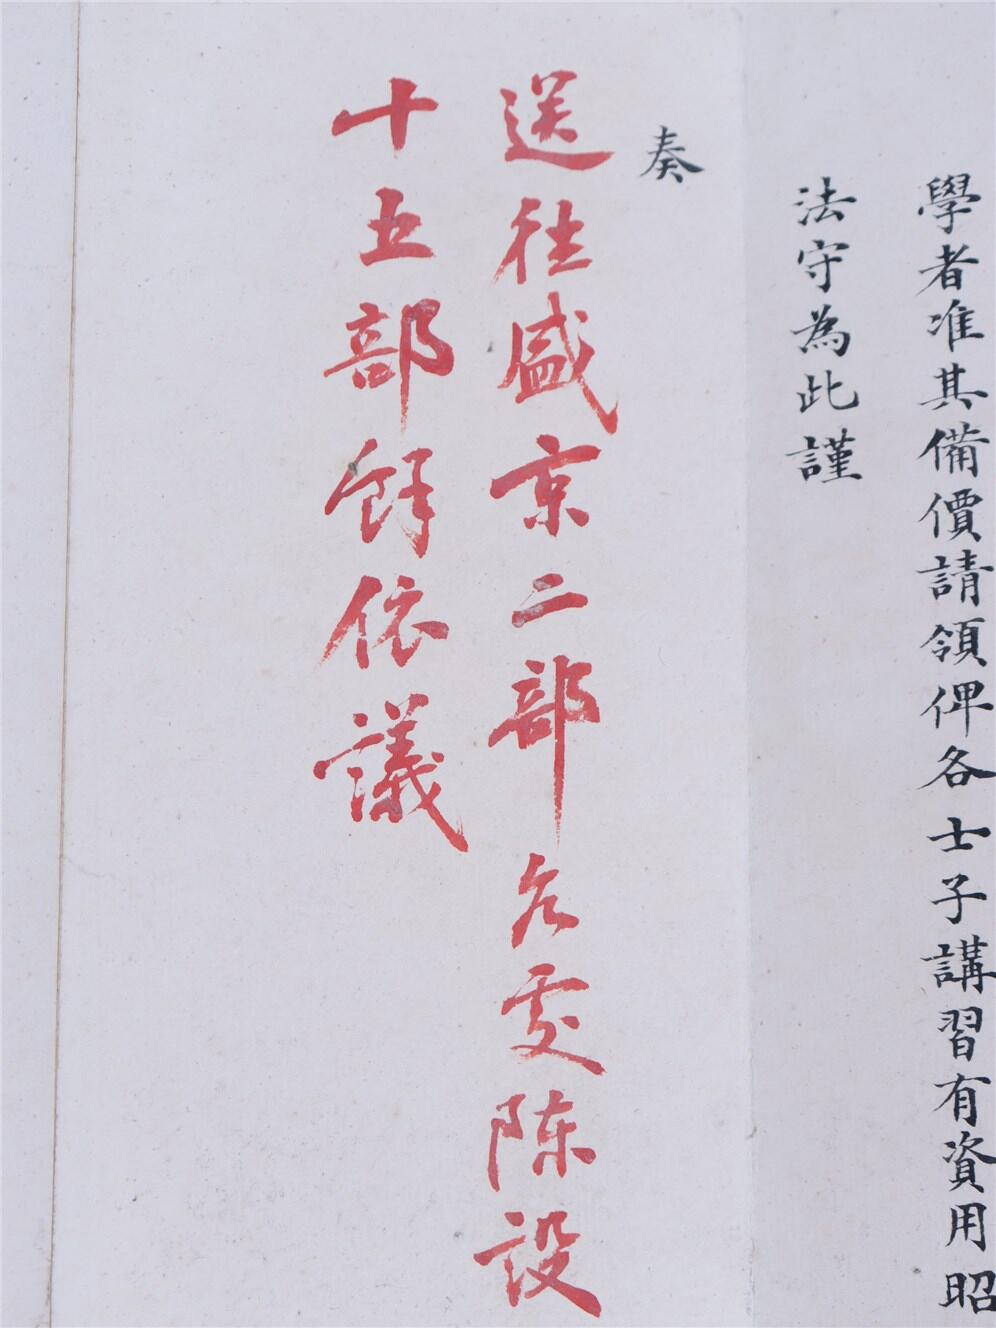 學者准其備價請領俾各士子講習有資用昭
法守為此謹
奏
送往盛京二部各處陳設
十五部餘依議